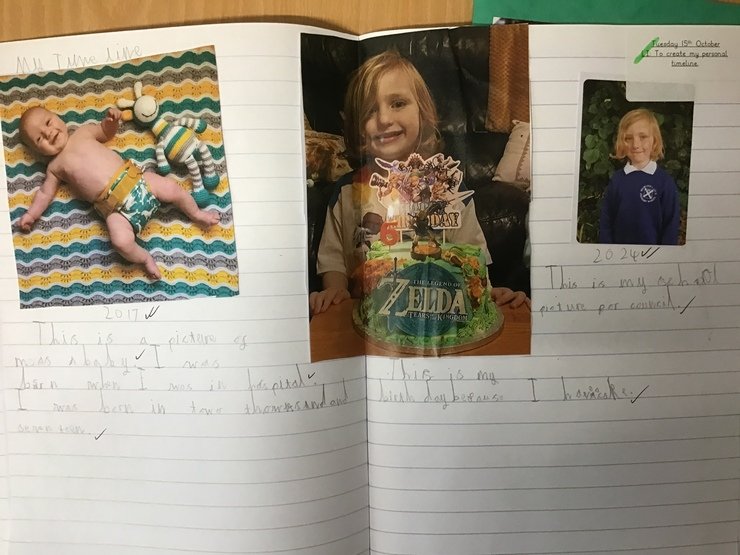 My Time line
Tuesday 15th October
LI: To create my personal
timeline.
2017
This is a picture of
me as a baby I was
born when I was in hospital.
I was born in two thousand and
seventeen.
6
BIRTHDAY
THE LEGEND OF
ZELDA
TEARS OF THE KINGDOM
This is my
birth day because I have cake.
2024
This is my school
picture for council.